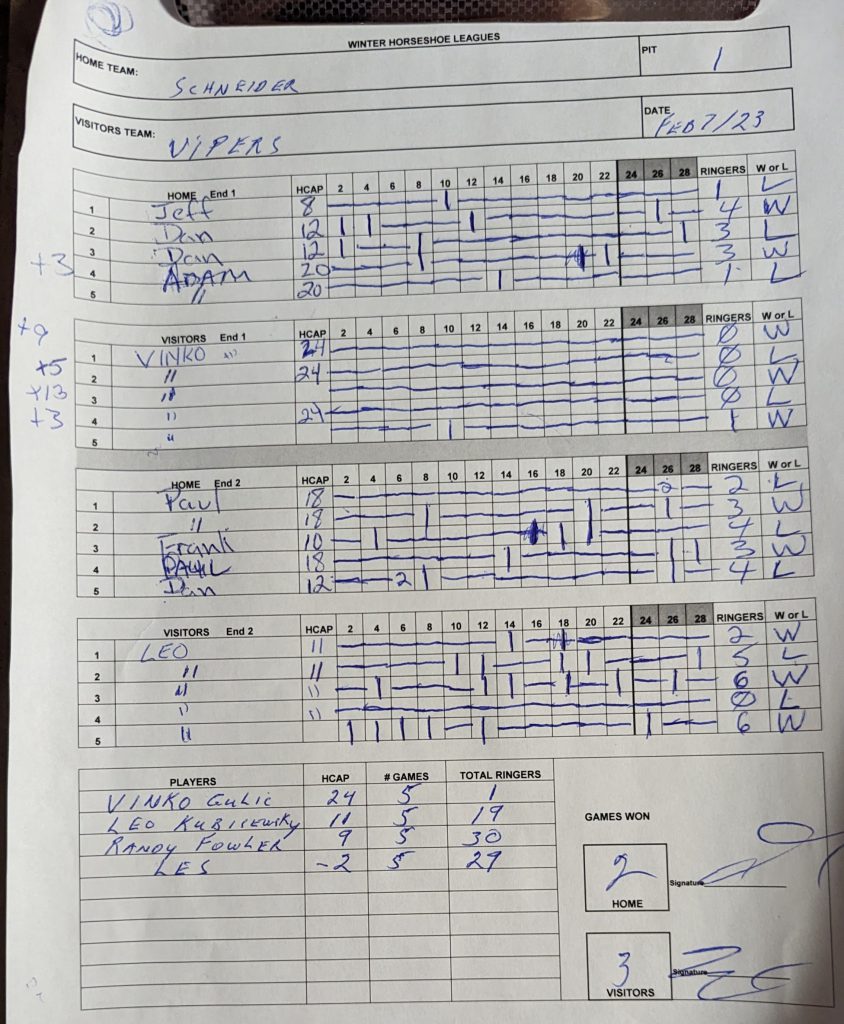 WINTER HORSESHOE LEAGUES
HOME TEAM: SCHNEIDER PIT 1
VISITORS TEAM: VIPERS DATE FEB 7/23
HOME End 1 HCAP 2 4 6 8 10 12 14 16 18 20 22 24 26 28 RINGERS W or L
1 Jeff 8 1 L
2 Dan 12 4 W
3 Dan 12 3 L
+3 4 ADAM 20 3 W
5 " 20 1 L
VISITORS End 1 HCAP 2 4 6 8 10 12 14 16 18 20 22 24 26 28 RINGERS W or L
+9 1 VINKO 24 0 W
+5 2 " 24 0 L
+13 3 " 0 W
+3 4 " 24 0 L
5 " 1 W
HOME End 2 HCAP 2 4 6 8 10 12 14 16 18 20 22 24 26 28 RINGERS W or L
1 Paul 18 2 2 L
2 " 18 3 W
3 Frank 10 4 L
4 PAUL 18 3 W
5 Dan 12 2 4 L
VISITORS End 2 HCAP 2 4 6 8 10 12 14 16 18 20 22 24 26 28 RINGERS W or L
1 LEO 11 2 W
2 " 11 5 L
3 " 11 6 W
4 " 11 0 L
5 " 6 W
PLAYERS HCAP # GAMES TOTAL RINGERS
VINKO Gulic 24 5 1
LEO KUBISEWSKY 11 5 19
RANDY FOWLER 9 5 30
LES -2 5 29
GAMES WON
2 Signature
HOME
3 Signature
VISITORS